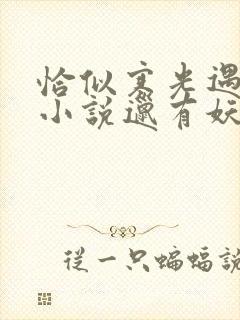 恰似寒光遇
小说邋有妖
从一只蝙蝠說